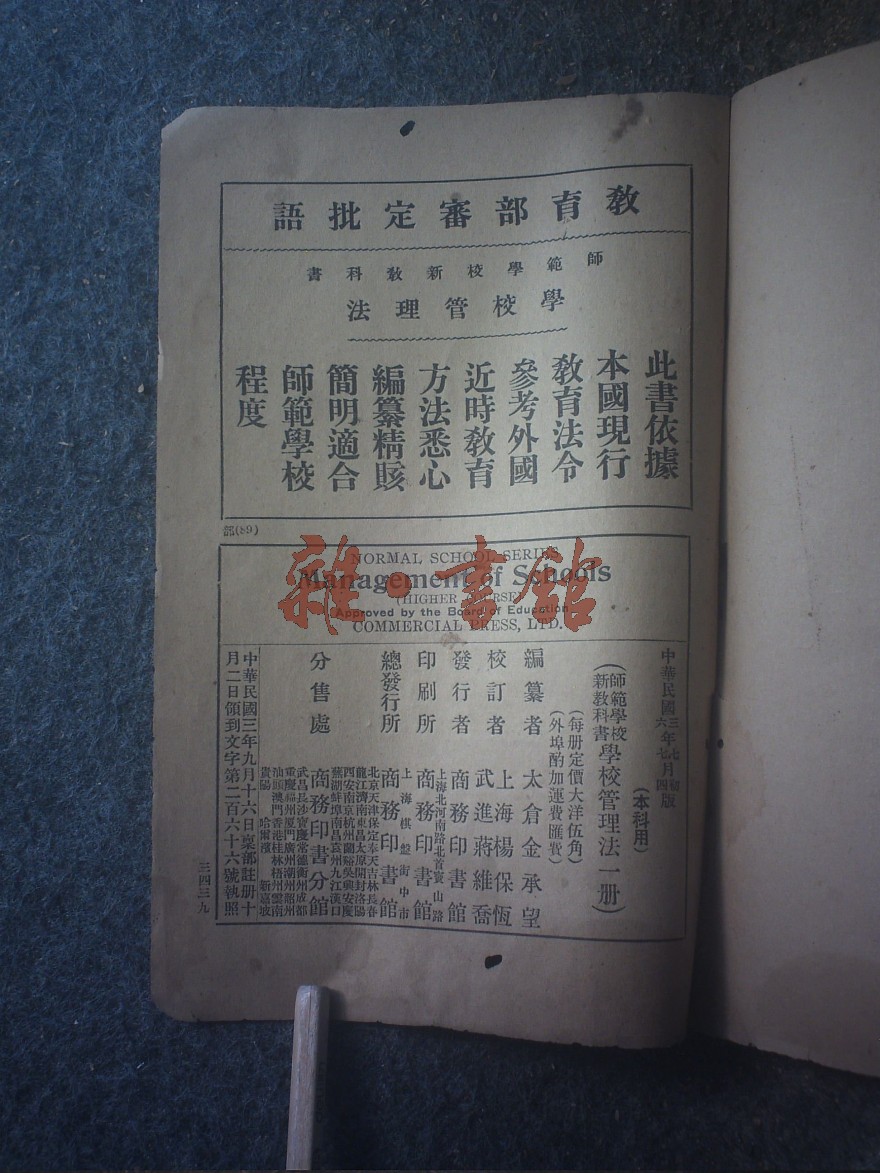 教育部審定批語
師範學校新教科書
學校管理法
此書依據
本國現行
教育法令
參考外國
近時教育
方法悉心
編纂精賅
簡明適合
師範學校
程度
部(89)
NORMAL SCHOOL SERIES
Management of Schools
(HIGHER COURSE)
Approved by the Board of Education
COMMERCIAL PRESS, LTD.
雜·書館
中華民國三年七月初版
六年七月四版
(本科用)
(師範學校新教科書學校管理法一册)
(每册定價大洋伍角)
(外埠酌加運費匯費)
編纂者 太倉金承望
校訂者 上海楊保恆
武進蔣維喬
發行者 商務印書館
上海北河南路北首寶山路
印刷所 商務印書館
上海棋盤街中市
總發行所 商務印書館
北京天津保定奉天吉林長春
龍江濟南東昌太原開封洛陽
西安南京杭州蘭谿吳興安慶
蕪湖蚌埠南昌袁州九江漢口
分售處 商務印書分館
武昌長沙寶慶常德衡州成都
重慶福州厦門廣州潮州韶州
汕頭澳門香港桂林梧州雲南
貴陽 哈爾濱 新嘉坡
中華民國三年九月十六日稟部註册十
月二日領到文字第二百六十六號執照
三四三九